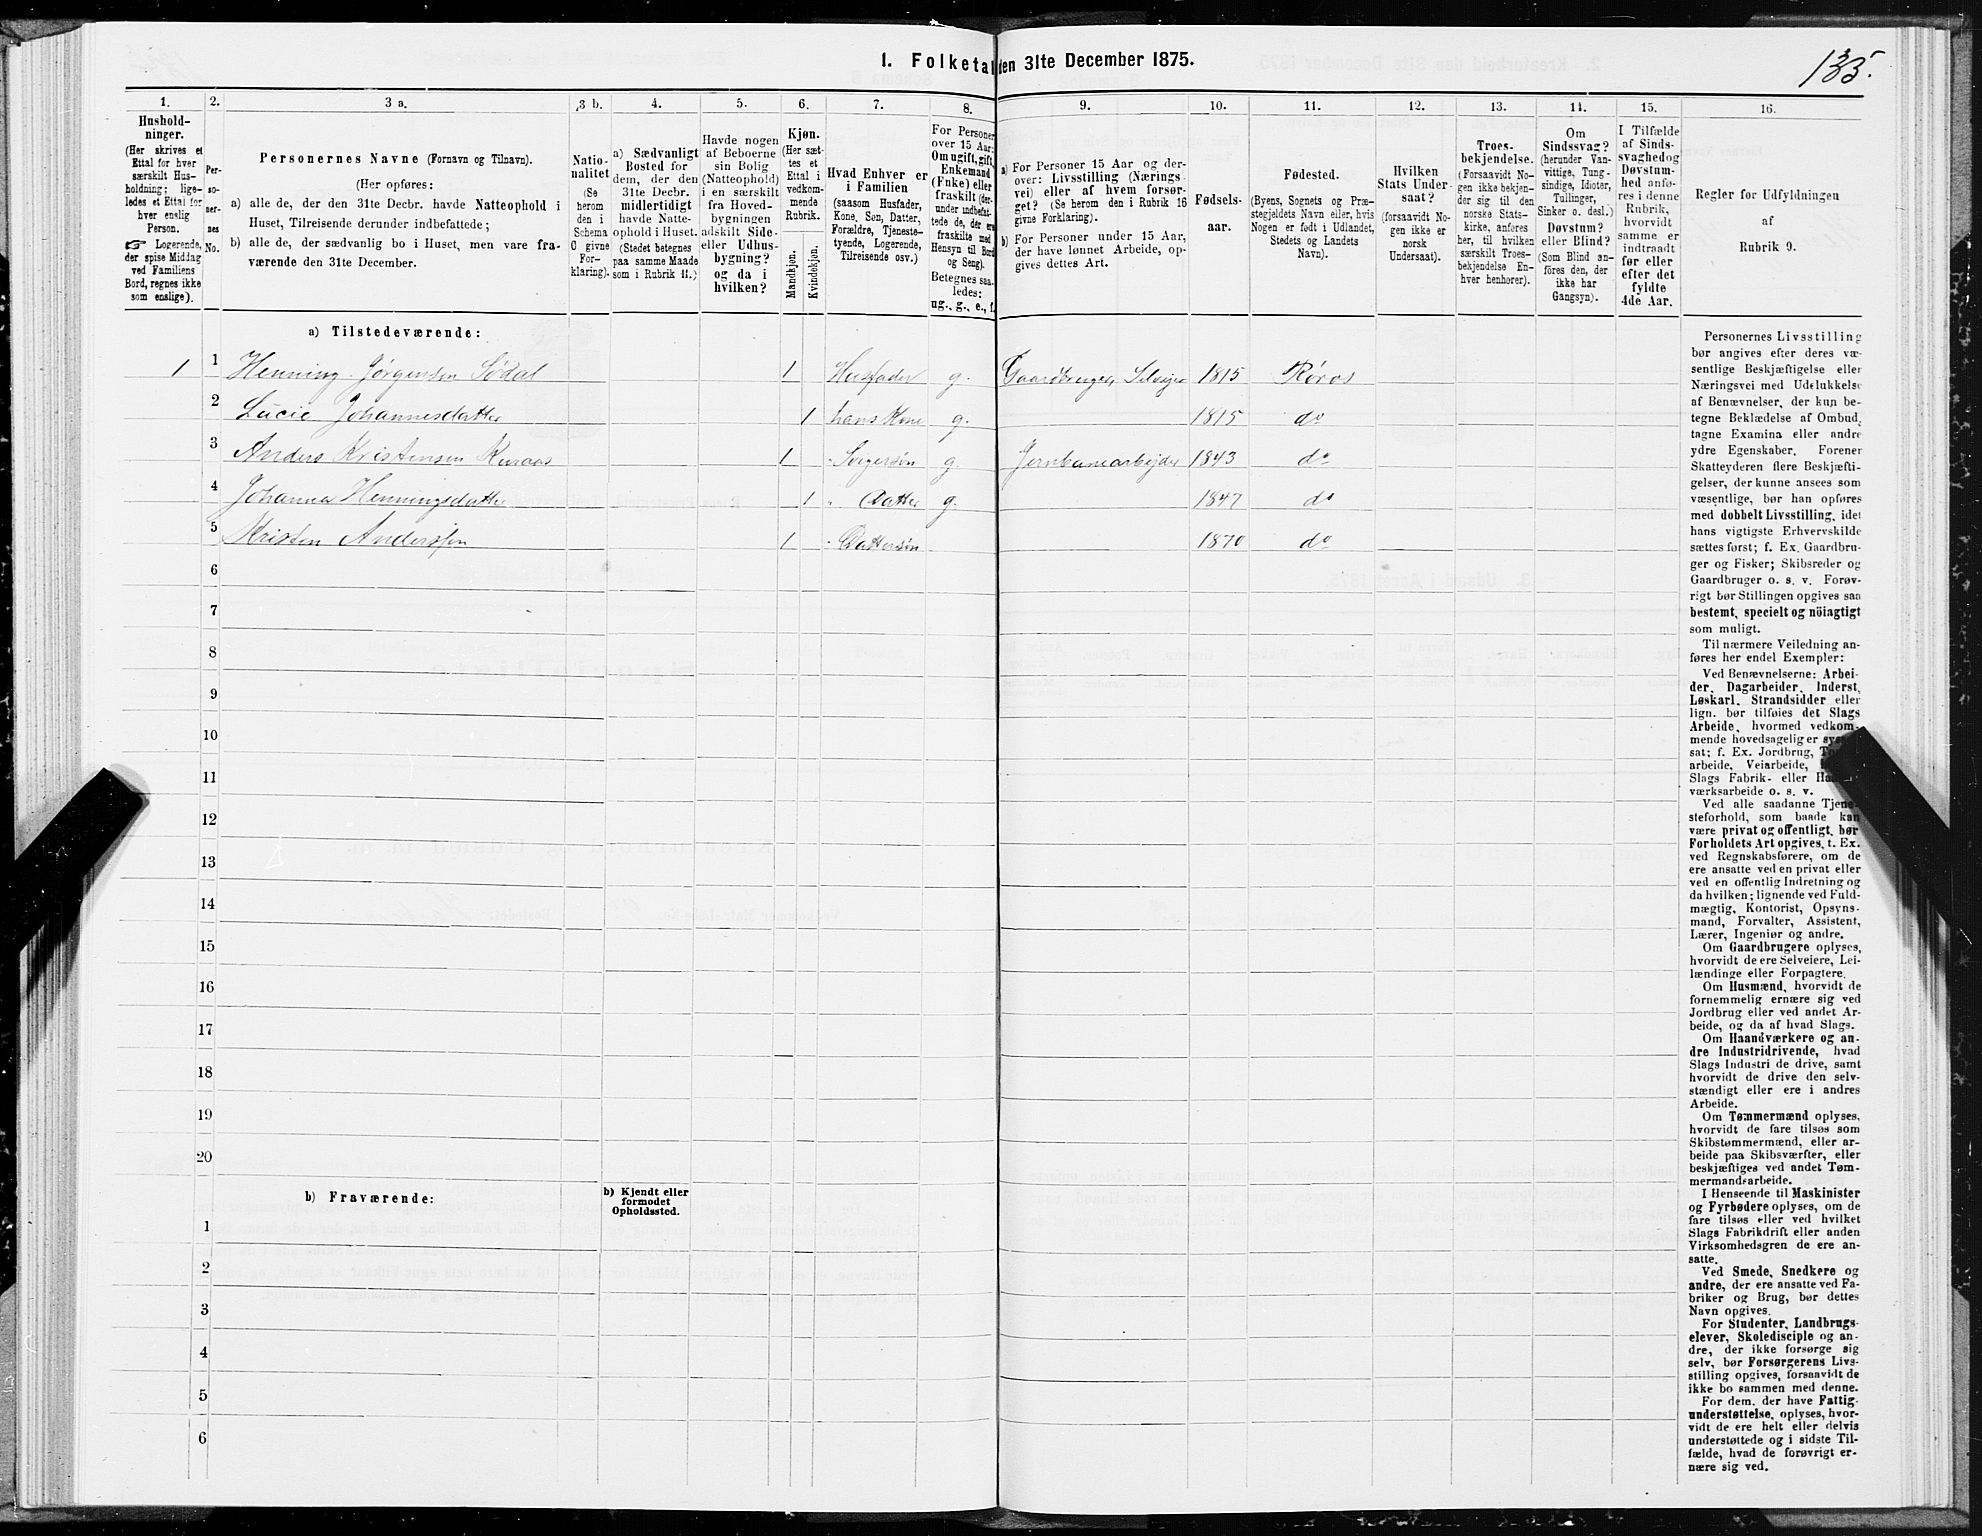 1. Folketal den 31te December 1875.
135.
1. 2. 3 a. 3 b. 4. 5. 6. 7. 8. 9. 10. 11. 12. 13. 14. 15. 16.
Hushold-
ninger.
(Her skrives et
Ettal for hver
særskilt Hus-
holdning; lige-
ledes et Ettal for
hver enslig
Person.
☞ Logerende,
der spise Middag
ved Familiens
Bord, regnes ikke
som enslige).
Per-
so-
ner-
nes
No.
Personernes Navne (Fornavn og Tilnavn).
(Her opføres:
a) alle de, der den 31te Decbr. havde Natteophold i
Huset, Tilreisende derunder indbefattede;
b) alle de, der sædvanlig bo i Huset, men vare fra-
værende den 31te December.
Natio-
nalitet
(Se
herom
den i
Schema
C givne
For-
klaring).
a) Sædvanligt
Bosted for
dem, der den
31te Decbr.
midlertidigt
havde Natte-
ophold i Huset.
(Stedet betegnes
paa samme Maade
som i Rubrik 11.)
Havde nogen
af Beboerne
sin Bolig
(Natteophold)
i en særskilt
fra Hoved-
bygningen
adskilt Side-
eller Udhus-
bygning?
og da i
hvilken?
Kjøn.
(Her sæt-
tes et
Ettal i
vedkom-
mende
Rubrik.
Mandkjøn.
Kvindekjøn.
Hvad Enhver er
i Familien
(saasom Husfader,
Kone, Søn, Datter,
Forældre, Tjeneste-
tyende, Logerende,
Tilreisende osv.)
For Personer
over 15 Aar:
Om ugift, gift,
Enkemand
(Enke) eller
fraskilt (der-
under indbefat-
tede de, der ere
fraskilte med
Hensyn til Bord
og Seng).
Betegnes saa-
ledes:
ug., g., e., f.
a) For Personer 15 Aar og der-
over: Livsstilling (Nærings-
vei) eller af hvem forsør-
get? (Se herom den i Rubrik 16
givne Forklaring).
b) For Personer under 15 Aar,
der have lønnet Arbeide, op-
gives dettes Art.
Fødsels-
aar.
Fødested.
(Byens, Sognets og Præ-
stegjeldets Navn eller, hvis
Nogen er født i Udlandet,
Stedets og Landets
Navn).
Hvilken
Stats Under-
saat?
(forsaavidt No-
gen ikke er
norsk
Undersaat).
Troes-
bekjendelse.
(Forsaavidt No-
gen ikke bekjen-
der sig til den
norske Stats-
kirke, anføres
her, til hvilken
særskilt Troes-
bekjendelse En-
hver henhører).
Om
Sindssvag?
(herunder Van-
vittige, Tung-
sindige, Idioter,
Tullinger,
Sinker o. desl.)
Døvstum?
eller Blind?
(Som Blind an-
føres den, der
ikke har
Gangsyn).
I Tilfælde
af Sinds-
svaghed og
Døvstum-
hed anfø-
res i denne
Rubrik,
hvorvidt
samme er
indtraadt
før eller
efter det
fyldte
4de Aar.
Regler for Udfyldningen
af
Rubrik 9.
a) Tilstedeværende:
1 1 Henning Jørgensen Sødal 1 Husfader g. Gaardbruger, Selveier 1815 Røros
2 Lucie Johannesdatter 1 hans Kone g. 1815 do
3 Anders Kristensen Kuraas 1 " Svigersøn g. Jernbanearbejder 1843 do
4 Johanna Henningsdatter 1 " Datter g. 1847 do
5 Kristen Anderssen 1 " Dattersøn 1870 do
6
7
8
9
10
11
12
13
14
15
16
17
18
19
20
b) Fraværende:
b) Kjendt eller
formodet
Opholdssted.
1
2
3
4
5
6
Personernes Livsstilling
bør angives efter deres væ-
sentlige Beskjæftigelse eller
Næringsvei med Udelukkelse
af Benævnelser, der kun be-
tegne Beklædelse af Ombud,
tagne Examina eller andre
ydre Egenskaber. Forener
Skatteyderen flere Beskjæfti-
gelser, der kunne ansees som
væsentlige, bør han opføres
med dobbelt Livsstilling, idet
hans vigtigste Erhvervskilde
sættes først; f. Ex. Gaardbru-
ger og Fisker; Skibsreder og
Gaardbruger o. s. v. Forøv-
rigt bør Stillingen opgives saa
bestemt, specielt og nöiagtigt
som muligt.
Til nærmere Veiledning an-
føres her endel Exempler:
Ved Benævnelserne: Arbei-
der, Dagarbeider, Inderst,
Løskarl, Strandsidder eller
lign. bør tilføies det Slags
Arbeide, hvormed vedkom-
mende hovedsagelig er
sat; f. Ex. Jordbrug,
arbeide, Veiarbeide,
Slags Fabrik- eller
værksarbeide o. s. v.
Ved alle saadanne Tjene-
steforhold, som baade kan
være privat og offentligt, bør
Forholdets Art opgives, t. Ex.
ved Regnskabsførere, om de
ere ansatte ved en privat eller
ved en offentlig Indretning og
da hvilken; lignende ved Fuld-
mægtig, Kontorist, Opsyns-
mand, Forvalter, Assistent,
Lærer, Ingeniør og andre.
Om Gaardbrugere oplyses,
hvorvidt de ere Selveiere, Lei-
lændinge eller Forpagtere.
Om Husmænd, hvorvidt de
fornemmelig ernære sig ved
Jordbrug eller ved andet Ar-
beide, og da af hvad Slags.
Om Haandværkere og an-
dre Industridrivende, hvad
Slags Industri de drive, samt
hvorvidt de drive den selv-
stændigt eller ere i andres
Arbeide.
Om Tømmermænd oplyses,
hvorvidt de fare tilsøs som
Skibstømmermænd, eller ar-
beide paa Skibsværfter, eller
beskjæftiges ved andet Tøm-
mermandsarbeide.
I Henseende til Maskinister
og Fyrbødere oplyses, om de
fare tilsøs eller ved hvilket
Slags Fabrikdrift eller anden
Virksomhedsgren de ere an-
satte.
Ved Smede, Snedkere og
andre, der ere ansatte ved Fa-
briker og Brug, bør dettes
Navn opgives.
For Studenter, Landbrugs-
elever, Skoledisciple og an-
dre, der ikke forsørge sig
selv, bør Forsørgerens Livs-
stilling opgives, forsaavidt de
ikke bo sammen med denne.
For dem, der have Fattig-
understøttelse, oplyses, hvor-
vidt de ere helt eller delvis
understøttede og i sidste Til-
fælde, hvad de forøvrigt er-
nære sig ved.